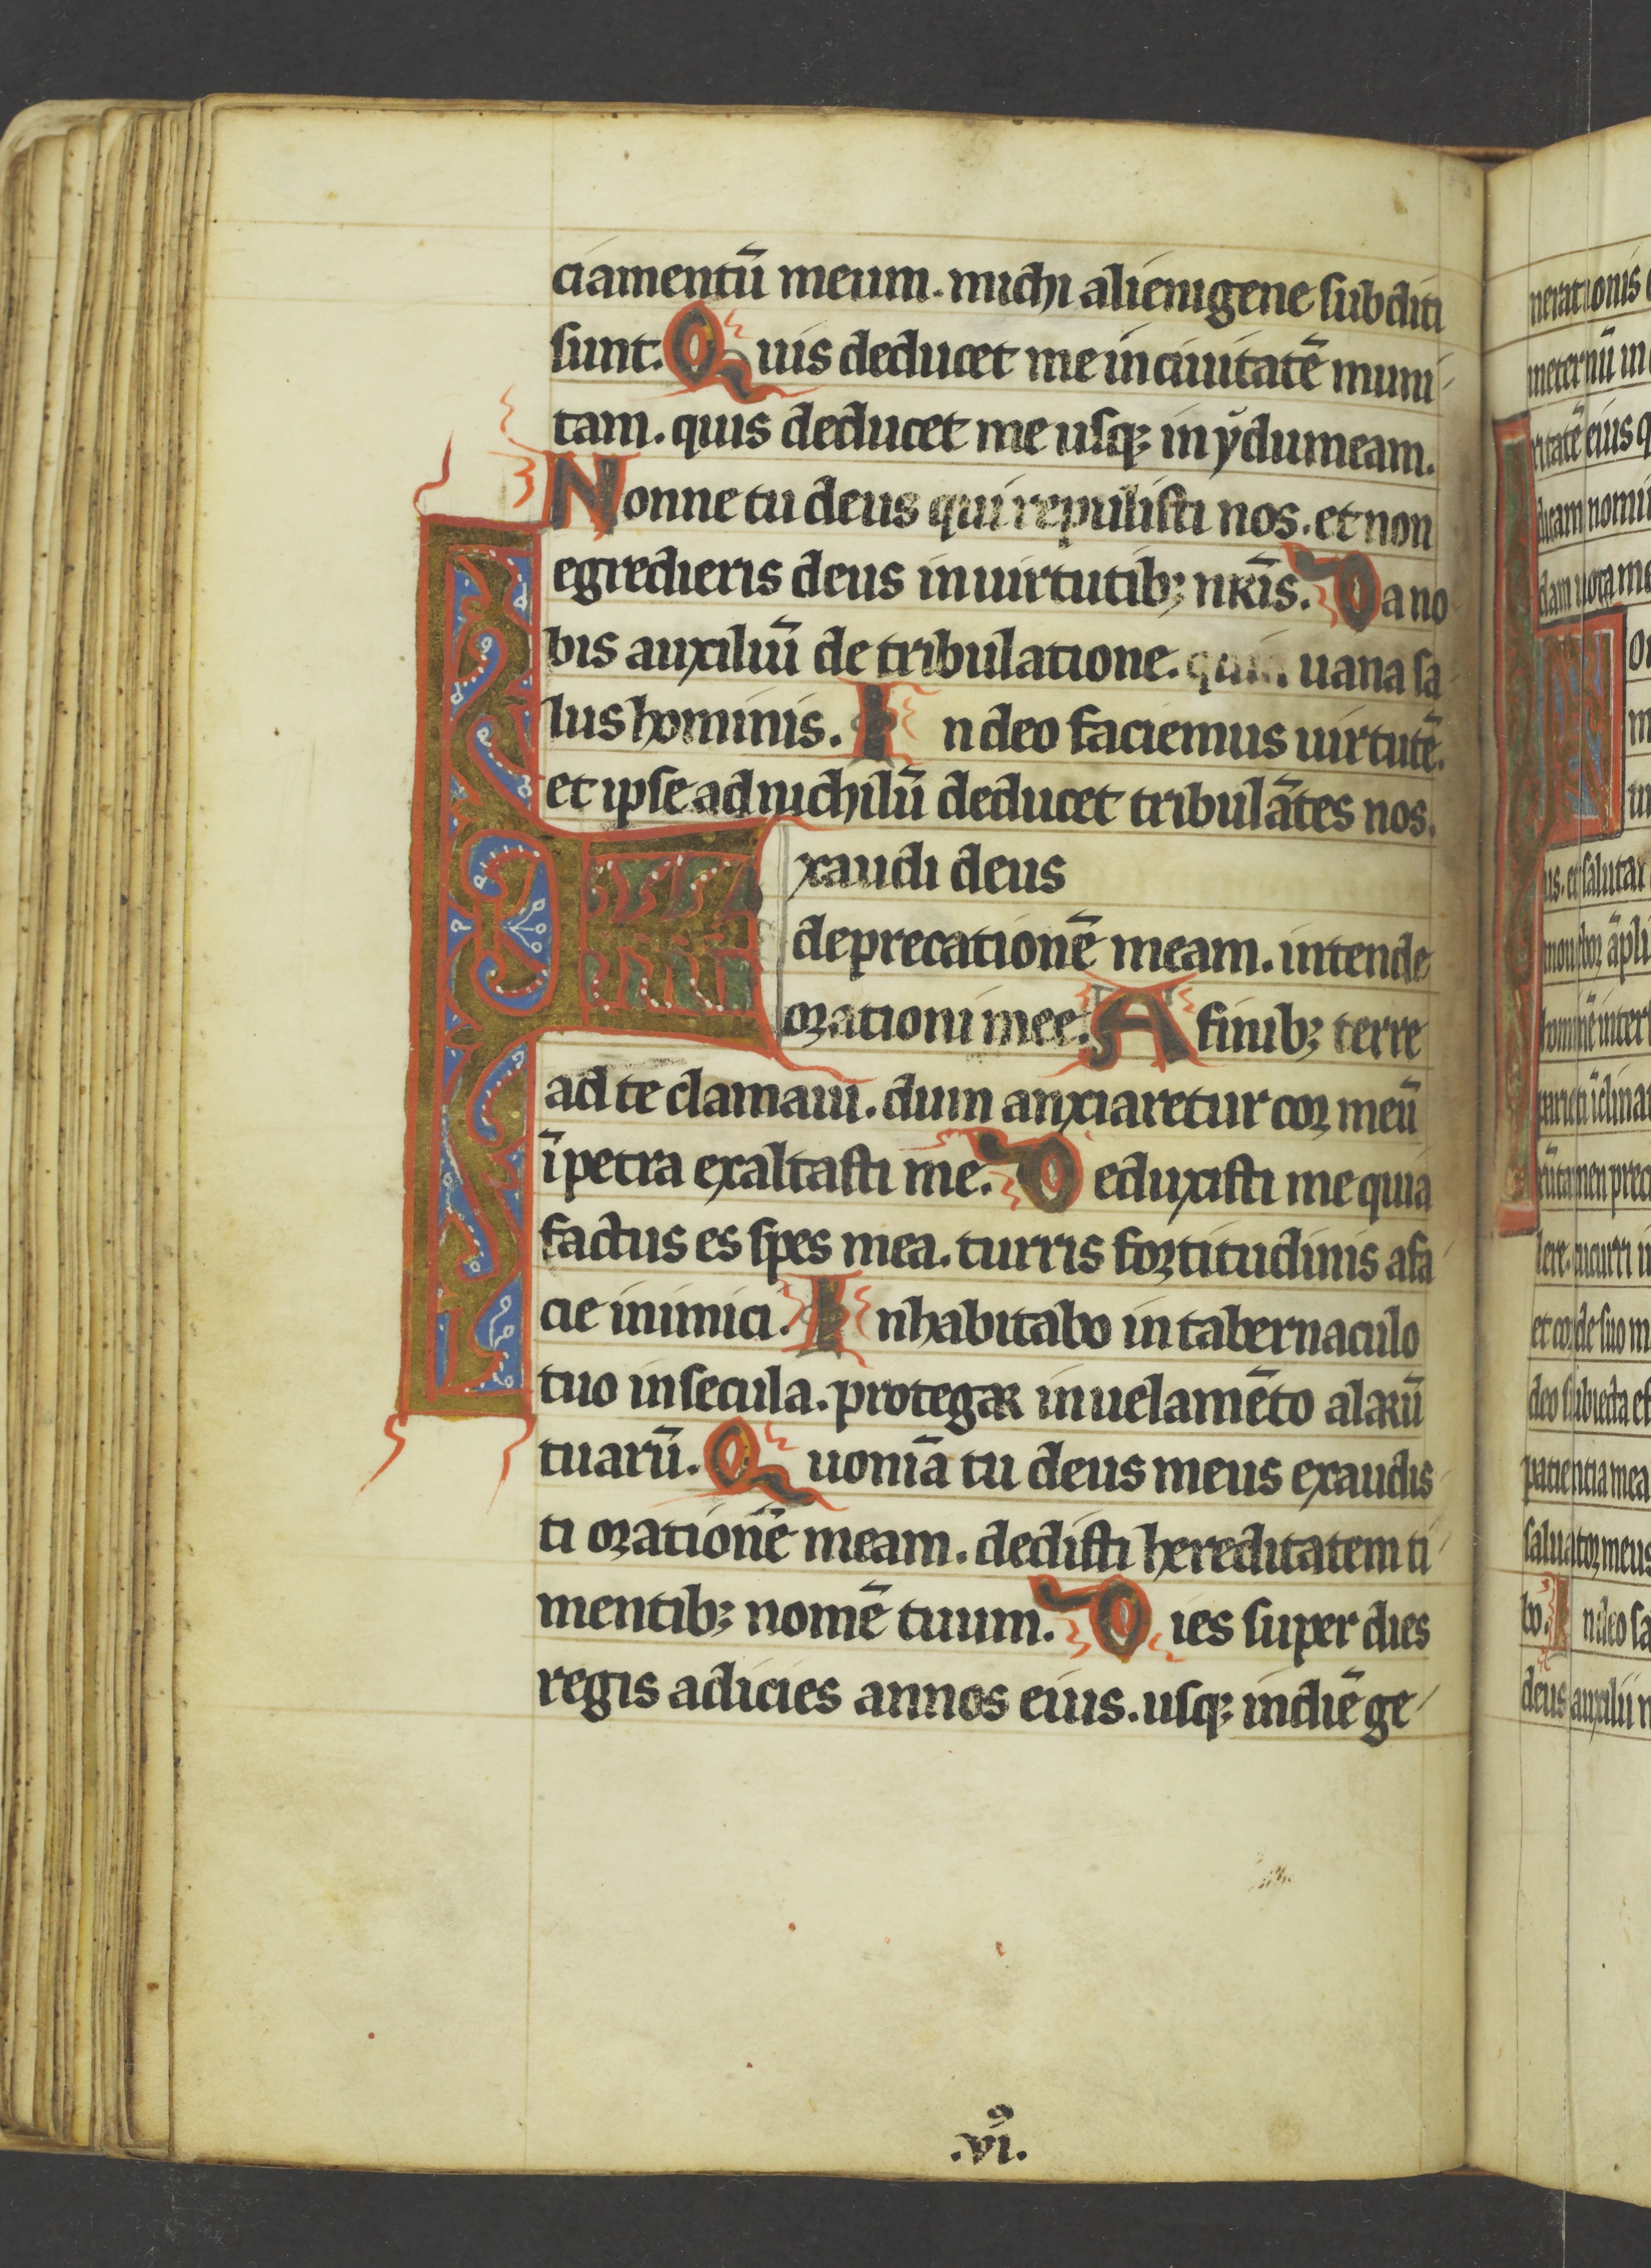 ciamentū meum. michi alienigene subditi
sunt. Quis deducet me in ciuitatē muni
tam. quis deducet me usq; in ydumeam.
Nonne tu deus qui repulisti nos. et non
egredieris deus in uirtutib; nr̄is. Da no
bis auxiliū de tribulatione. quia uana sa
lus hominis. In deo faciemus uirtutē.
et ipse ad nichilū deducet tribulātes nos.
Exaudi deus
deprecationē meam. intende
orationi mee. A finib; terre
ad te clamaui. dum anxiaretur cor meū
ī petra exaltasti me. Deduxisti me quia
factus es spes mea. turris fortitudinis a fa
cie inimici. Inhabitabo in tabernaculo
tuo in secula. protegar in uelamēto alarū
tuarū. Quoniā tu deus meus exaudis
ti orationē meam. dedisti hereditatem ti
mentib; nomē tuum. Dies super dies
regis adicies annos eius. usq; in diē ge
.vi⁹.
nerationis
in eternū in
ritatē eius q
dicam nomi
dam uota me
us. et salutar
hominē inter
rūtamen preci
lere. cucurri in
et corde suo m
deo subiecta es
patientia mea
saluator meus
bo. In deo sa
deus auxilii m